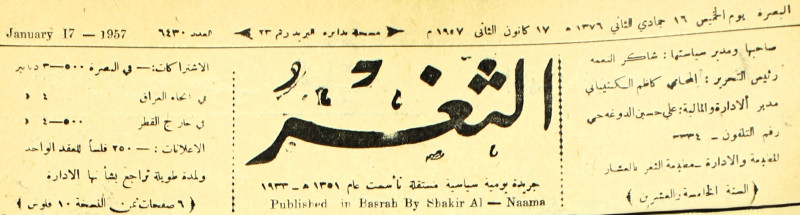 البصرة يوم الخميس ١٦ جمادي الثاني ١٣٧٦ هـ ١٧ كانون الثاني ١٩٥٧ م مسجلة بدائرة البريد رقم ٢٣ العدد ٦٤٣٠ January 17 — 1957
صاحبها ومدير سياستها : شاكر النعمه
رئيس التحرير : المحامي كاظم الكتيباني
مدير الادارة والمالية: علي حسين الدوغه جي
رقم التلفون - ٣٣٣٤
المطبعة والادارة - مطبعة الثغر بالعشار
( السنة الخامسة والعشرين )
الثغر
جريدة يومية سياسية مستقلة تأسست عام ١٣٥١ هـ - ١٩٣٣
Published in Basrah By Shakir Al — Naama
الاشتراكات :— في البصرة ٥٠٠—٣ دنانير
في انحاء العراق ٤ »
في خارج القطر ٥٠٠—٤ »
الاعلانات :— ٢٥٠ فلساً للعقد الواحد
ولمدة طويلة تراجع بشأنها الادارة
( ٦ صفحات ثمن النسخة ١٠ فلوس )